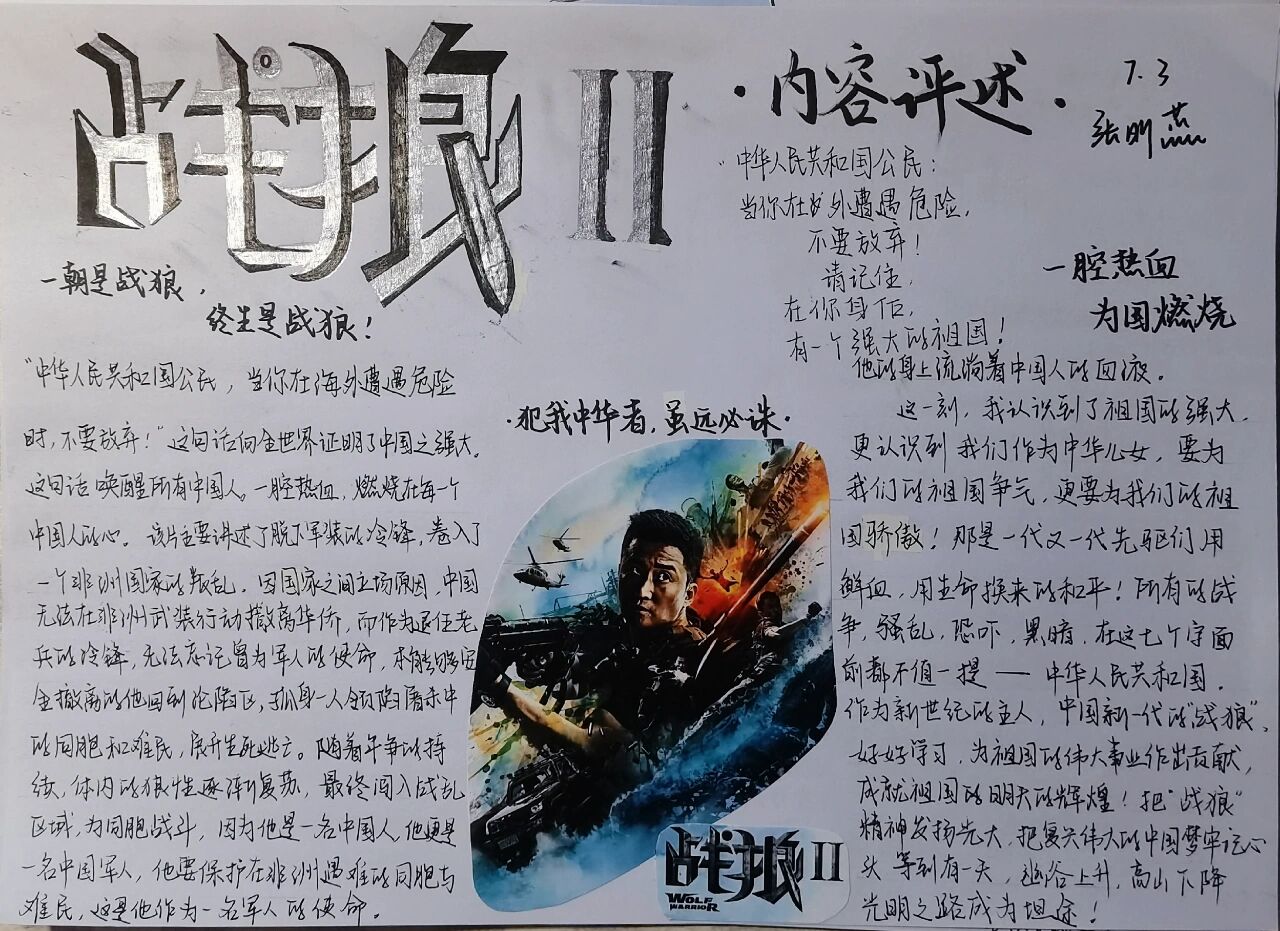 战狼 II
一朝是战狼，
终生是战狼！
"中华人民共和国公民，当你在海外遭遇危险
时，不要放弃！"这句话向全世界证明了中国之强大。
这句话唤醒所有中国人。一腔热血，燃烧在每一个
中国人的心。该片主要讲述了脱下军装的冷锋，卷入了
一个非洲国家的叛乱。因国家之间立场原因，中国
无法在非洲武装行动撤离华侨，而作为退伍老
兵的冷锋，无法忘记曾为军人的使命，本能够安
全撤离的他回到沦陷区，孤身一人领陷屠杀中
的同胞和难民，展开生死逃亡。随着斗争的持
续，体内的狼性逐渐复苏，最终闯入战乱
区域，为同胞战斗，因为他是一名中国人，他更是
一名中国军人，他要保护在非洲遇难的同胞与
难民，这是他作为一名军人的使命。
·犯我中华者，虽远必诛·
战狼 II
WOLF
WARRIOR
·内容评述·
7.3
张明
中华人民共和国公民：
当你在海外遭遇危险，
不要放弃！
请记住，
在你身后，
有一个强大的祖国！
一腔热血
为国燃烧
他的身上流淌着中国人的血液。
这一刻，我认识到了祖国的强大，
更认识到我们作为中华儿女，要为
我们的祖国争气，更要为我们的祖
国骄傲！那是一代又一代先驱们用
鲜血，用生命换来的和平！所有的战
争，骚乱，恐吓，黑暗，在这七个字面
前都不值一提——中华人民共和国。
作为新世纪的主人，中国新一代的"战狼"，
好好学习，为祖国的伟大事业作出贡献，
成就祖国的明天的辉煌！把"战狼"
精神发扬光大，把复兴伟大的中国梦牢记心
头 等到有一天，幽谷上升，高山下降
光明之路成为坦途！